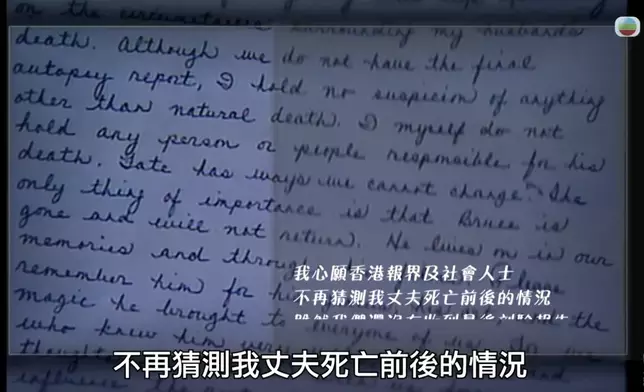 on the circumstances surrounding my husband's
death. Although we do not have the final
autopsy report, I hold no suspicion of anything
other than natural death. I myself do not
hold any person or people responsible for his
death. Fate has ways we cannot change. The
only thing of importance is that Bruce is
gone and will not return. He lives on in our
memories and through
remember him for his the
magic he brought to everyone of us.
who knew him very
我心願香港報界及社會人士
不再猜測我丈夫死亡前後的情況
不再猜測我丈夫死亡前後的情況